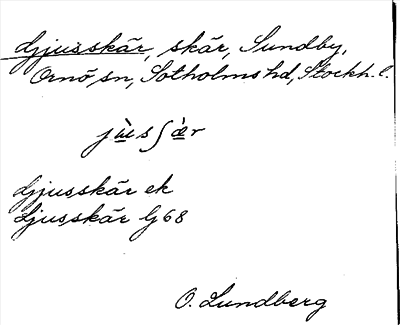 Ljusskär, skär, Sundby,
Ornö sn, Sotholms hd, Stockh. l.
jùsʃæ̀r
Ljusskär ek
Ljusskär Gj 68
O. Lundberg